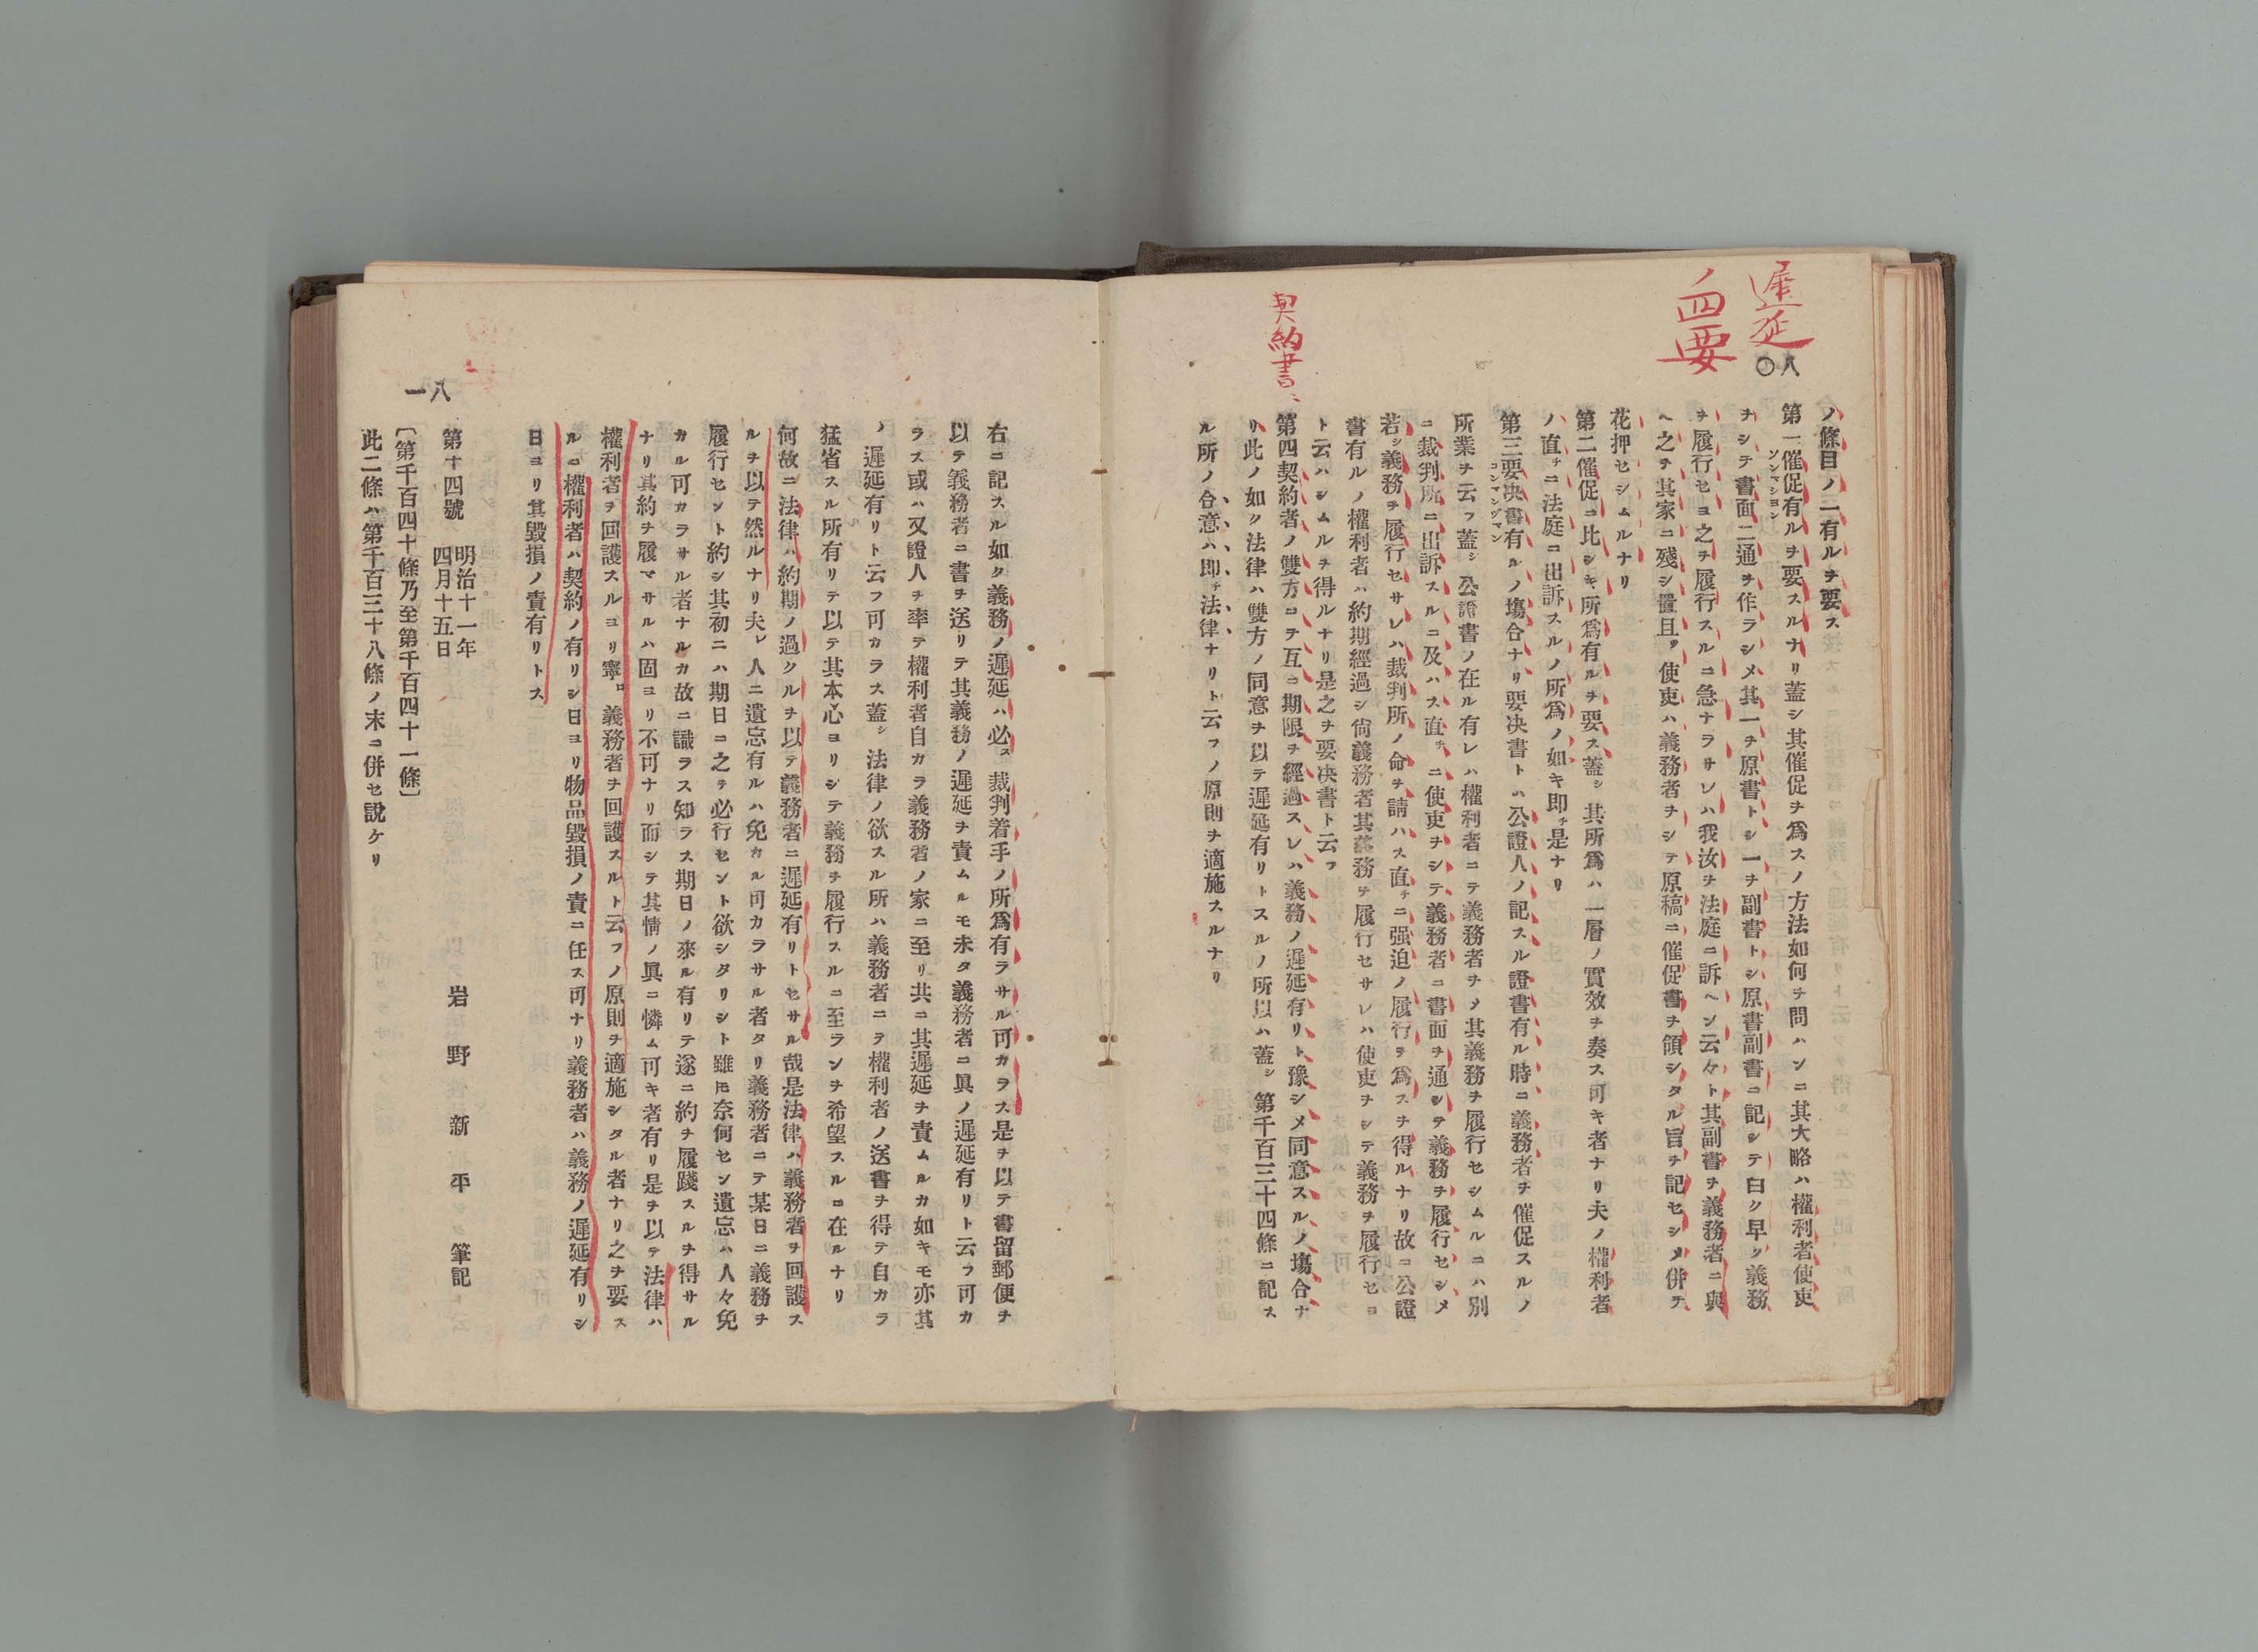 遲延
ノ四要
八〇
ノ條目ノ一有ルヲ要ス
第一催促有ルヲ要スルナリ蓋シ其催促ヲ爲スノ方法如何ヲ問ハンニ其大略ハ權利者使吏
ソンマシヨン
ヲシテ書面二通ヲ作ラシメ其一ヲ原書トシ一ヲ副書トシ原書副書ニ記シテ曰ク早ク義務
ヲ履行セヨ之ヲ履行スルニ急ナラサレハ我汝ヲ法庭ニ訴ヘン云々ト其副書ヲ義務者ニ與
ヘ之ヲ其家ニ殘シ置且ツ使吏ハ義務者ヲシテ原稿ニ催促書ヲ領シタル旨ヲ記セシメ併テ
花押セシムルナリ
第二催促ニ比シキ所爲有ルヲ要ス蓋シ其所爲ハ一層ノ實效ヲ奏ス可キ者ナリ夫ノ權利者
ノ直チニ法庭ニ出訴スルノ所爲ノ如キ即チ是ナリ
第三要决書有ルノ塲合ナリ要决書トハ公證人ノ記スル證書有ル時ニ義務者ヲ催促スルノ
コンマンヅマン
所業ヲ云フ蓋シ公證書ノ在ル有レハ權利者ニテ義務者ヲメ其義務ヲ履行セシムルニハ別
ニ裁判所ニ出訴スルニ及ハス直チニ使吏ヲシテ義務者ニ書面ヲ通シテ義務ヲ履行セシメ
若シ義務ヲ履行セサレハ裁判所ノ命ヲ請ハス直チニ强迫ノ履行ヲ爲スヲ得ルナリ故ニ公證
書有ルノ權利者ハ約期經過シ尙義務者其義務ヲ履行セサレハ使吏ヲシテ義務ヲ履行セヨ
ト云ハシムルヲ得ルナリ是之ヲ要决書ト云フ
契約書
第四契約者ノ雙方ニテ互ニ期限ヲ經過スレハ義務ノ遲延有リト豫シメ同意スルノ塲合ナ
リ此ノ如ク法律ハ雙方ノ同意ヲ以テ遲延有リトスルノ所以ハ蓋シ第千百三十四條ニ記ス
ル所ノ合意ハ即チ法律ナリト云フノ原則ヲ適施スルナリ
右ニ記スル如ク義務ノ遲延ハ必ス裁判着手ノ所爲有ラサル可カラス是ヲ以テ書留郵便ヲ
以テ義務者ニ書ヲ送リテ其義務ノ遲延ヲ責ムルモ未タ義務者ニ眞ノ遲延有リト云フ可カ
ラス或ハ又證人ヲ率テ權利者自カラ義務者ノ家ニ至リ共ニ其遲延ヲ責ムルカ如キモ亦其
ノ遲延有リト云フ可カラス蓋シ法律ノ欲スル所ハ義務者ニヲ權利者ノ送書ヲ得テ自カラ
猛省スル所有リテ以テ其本心ヨリシテ義務ヲ履行スルニ至ランヲ希望スルニ在ルナリ
何故ニ法律ハ約期ノ過クルヲ以テ義務者ニ遲延有リトセサル哉是法律ハ義務者ヲ回護ス
ルヲ以テ然ルナリ夫レ人ニ遺忘有ルハ免カル可カラサル者タリ義務者ニテ某日ニ義務ヲ
履行セント約シ其初ニハ期日ニ之ヲ必行セント欲シタリシト雖モ奈何セン遺忘ハ人々免
カル可カラサル者ナルカ故ニ識ラス知ラス期日ノ來ル有リテ遂ニ約ヲ履踐スルヲ得サル
ナリ其約ヲ履マサルハ固ヨリ不可ナリ而シテ其情ノ眞ニ憐ム可キ者有リ是ヲ以テ法律ハ
權利者ヲ回護スルヨリ寧ロ義務者ヲ回護スルト云フノ原則ヲ適施シタル者ナリ之ヲ要ス
ルニ權利者ハ契約ノ有リシ日ヨリ物品毀損ノ責ニ任ス可ナリ義務者ハ義務ノ遲延有リシ
日ヨリ其毀損ノ責有リトス
第十四號　明治十一年
四月十五日　岩野新平　筆記
〔第千百四十條乃至第千百四十一條〕
此二條ハ第千百三十八條ノ末ニ併セ說ケリ
八一